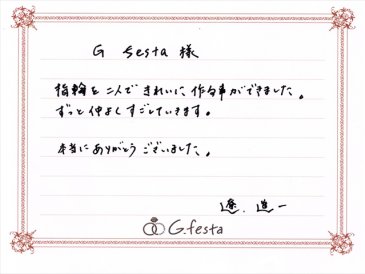 G festa 様
指輪を二人できれいに作る事ができました。
ずっと仲よくすごしていきます。
本当にありがとうございました。
遼. 進一
G.festa